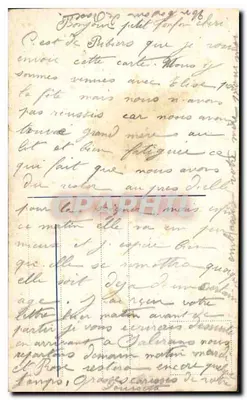 Bonjour petit
C'est de Ribiers que je vous
envoie cette carte. Nous y
sommes venues avec Elise pour
la fête mais nous n'avons
pas réussis car nous avons
trouvé grand mère au
lit et bien fatiguée ce
qui fait que nous avons
du rester au près d'elle
CPAPHIL
pour la
ce matin elle va un peu
mieux et j'espère bien
qu'elle se
elle soit déjà d'un certain
age. J'ai reçu votre
lettre hier matin avant de
partir je vous écrirais
en arrivant à nous
repartons demain matin mardi
restera encore quelque
temps. Grosses caresses de votre